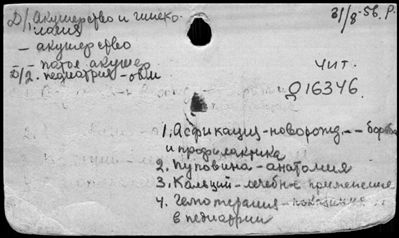 Д/1. Акушерство и гинеко-
логия
31/8-56. Р.
- акушерство
- патол. акушер.
Д/2. педиатрия - общ.
чит.
Д16346.
1. Асфикация - новорожд. -- борьба
и профилактика
2. Пуповина - анатомия
3. Кальций - лечебн-е применение
4. Гемотерапия - показание
в педиатрии